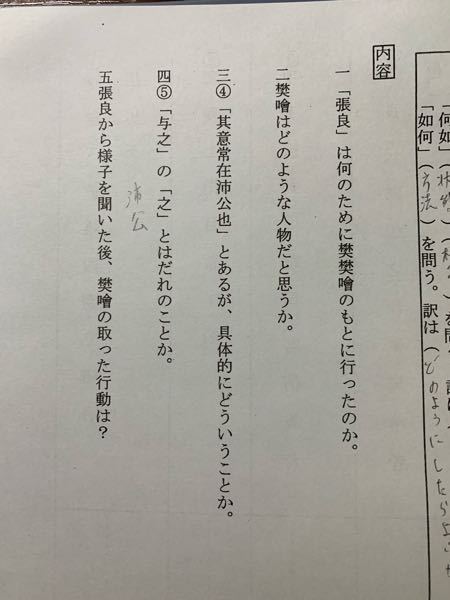 「何如」(
「如何」(方法)を問う。訳は(どのようにしたらよ
内容
一「張良」は何のために樊樊噲のもとに行ったのか。
二樊噲はどのような人物だと思うか。
三④「其意常在沛公也」とあるが、具体的にどういうことか。
四⑤「与之」の「之」とはだれのことか。
沛公
五張良から様子を聞いた後、樊噲の取った行動は?